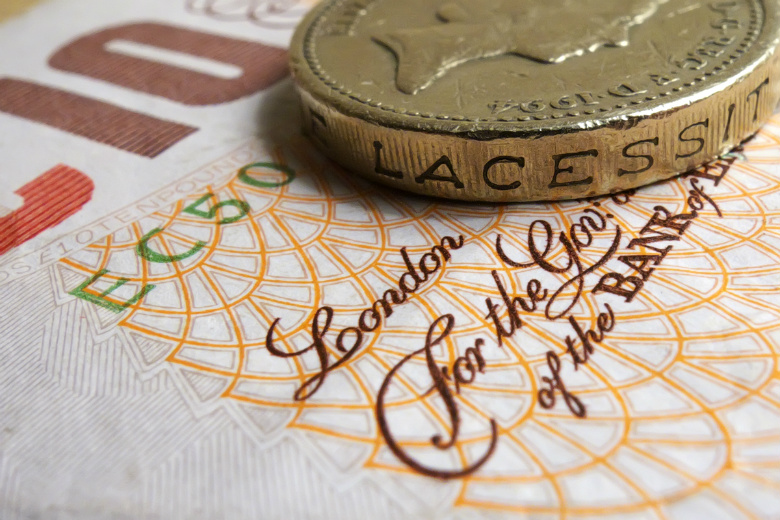 10
LACESSIT
1994
EC50
£10TENPOUND
London
For the Gov:
of the BANK of E